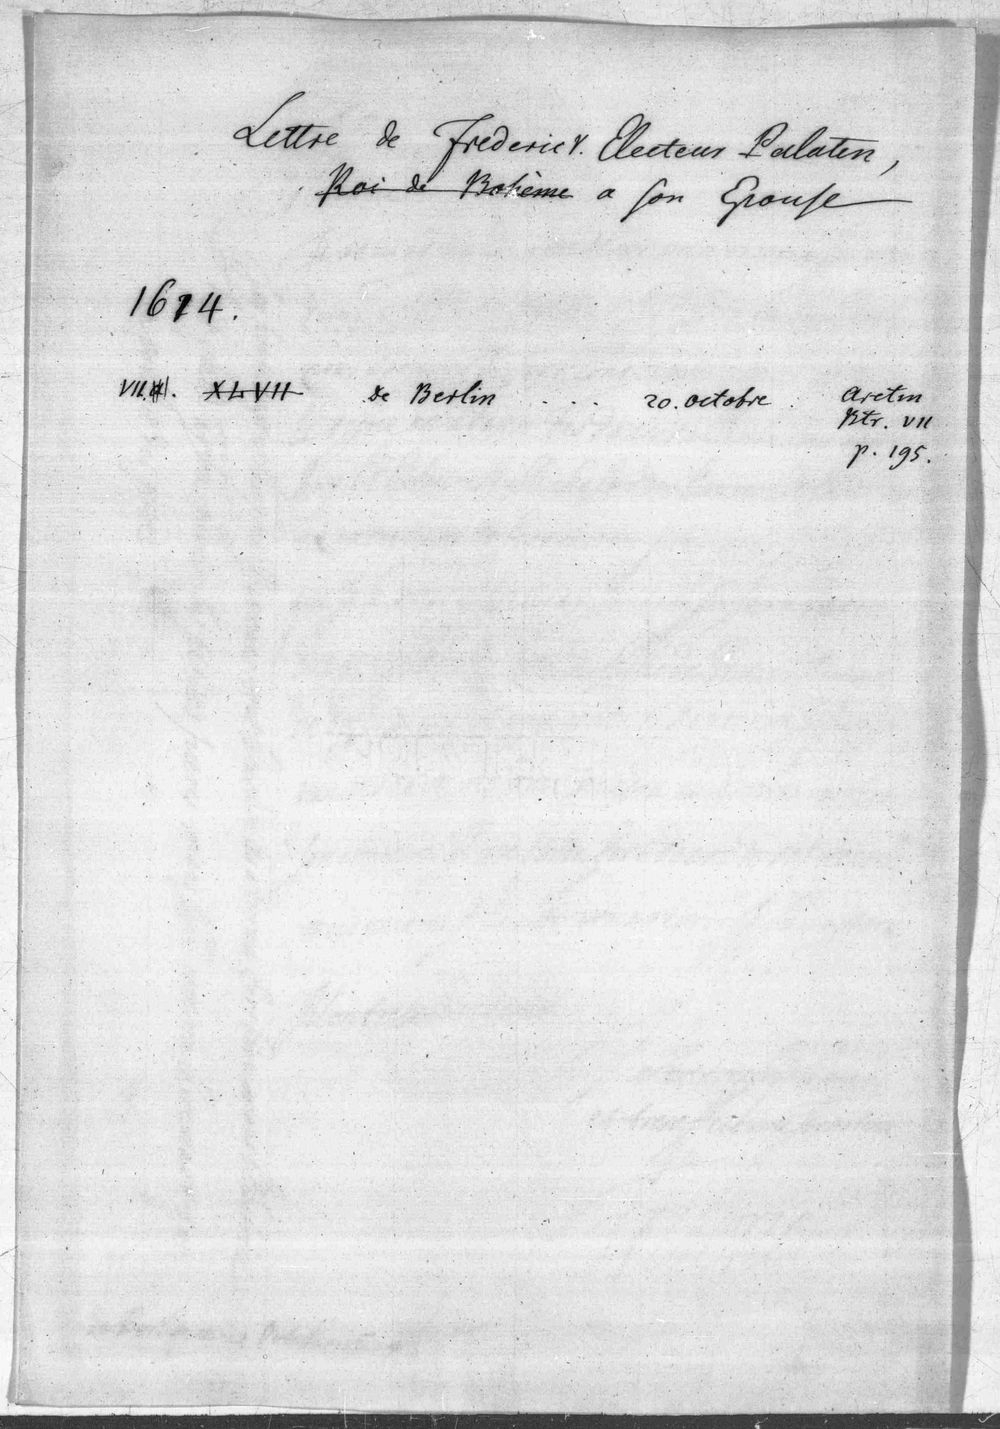 Lettre de Frederic V. Electeur Palatin,
Roi de Bohème a son Epouse
1614.
VII. XLVII de Berlin . . . 20. octobre . Aretin
Btr. VII
p. 195.